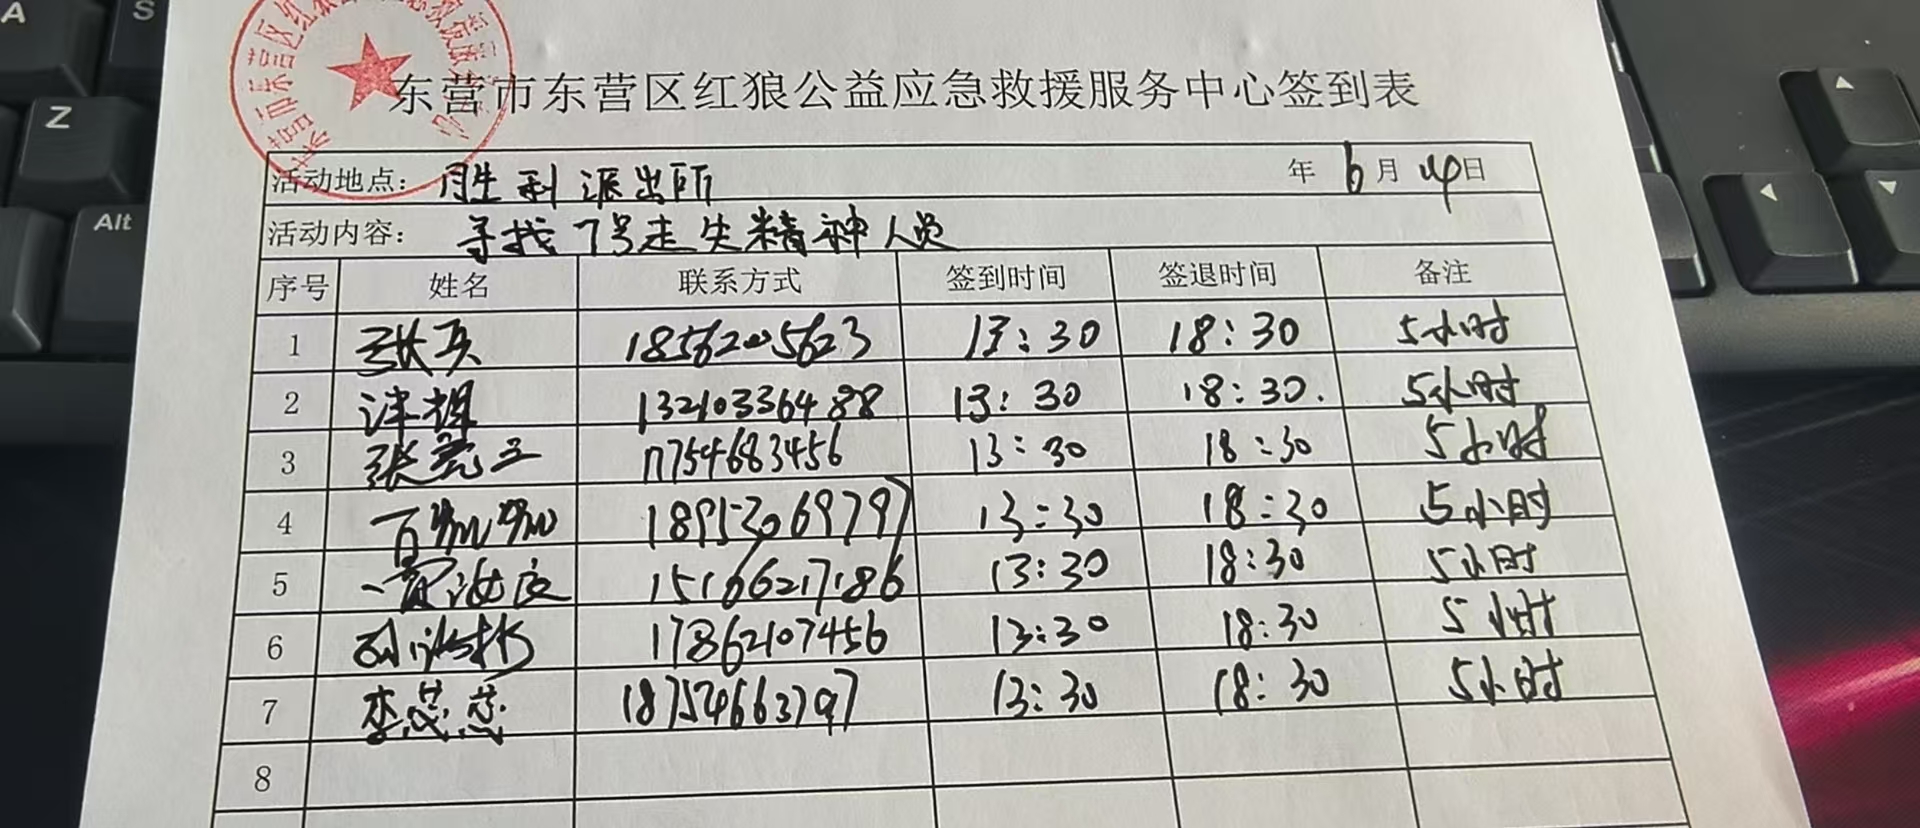 东营市东营区红狼公益应急救援服务中心签到表
活动地点: 胜利派出所 年 6月 14日
活动内容: 寻找7号走失精神人员
序号 姓名 联系方式 签到时间 签退时间 备注
1 18562005623 13:30 18:30 5小时
2 13210336488 13:30 18:30. 5小时
3 张亮三 17754683456 13:30 18:30 5小时
4 18953069797 13:30 18:30 5小时
5 15166217186 13:30 18:30 5小时
6 17862107456 13:30 18:30 5小时
7 李蕊蕊 18754663797 13:30 18:30 5小时
8
A
S
Z
Alt